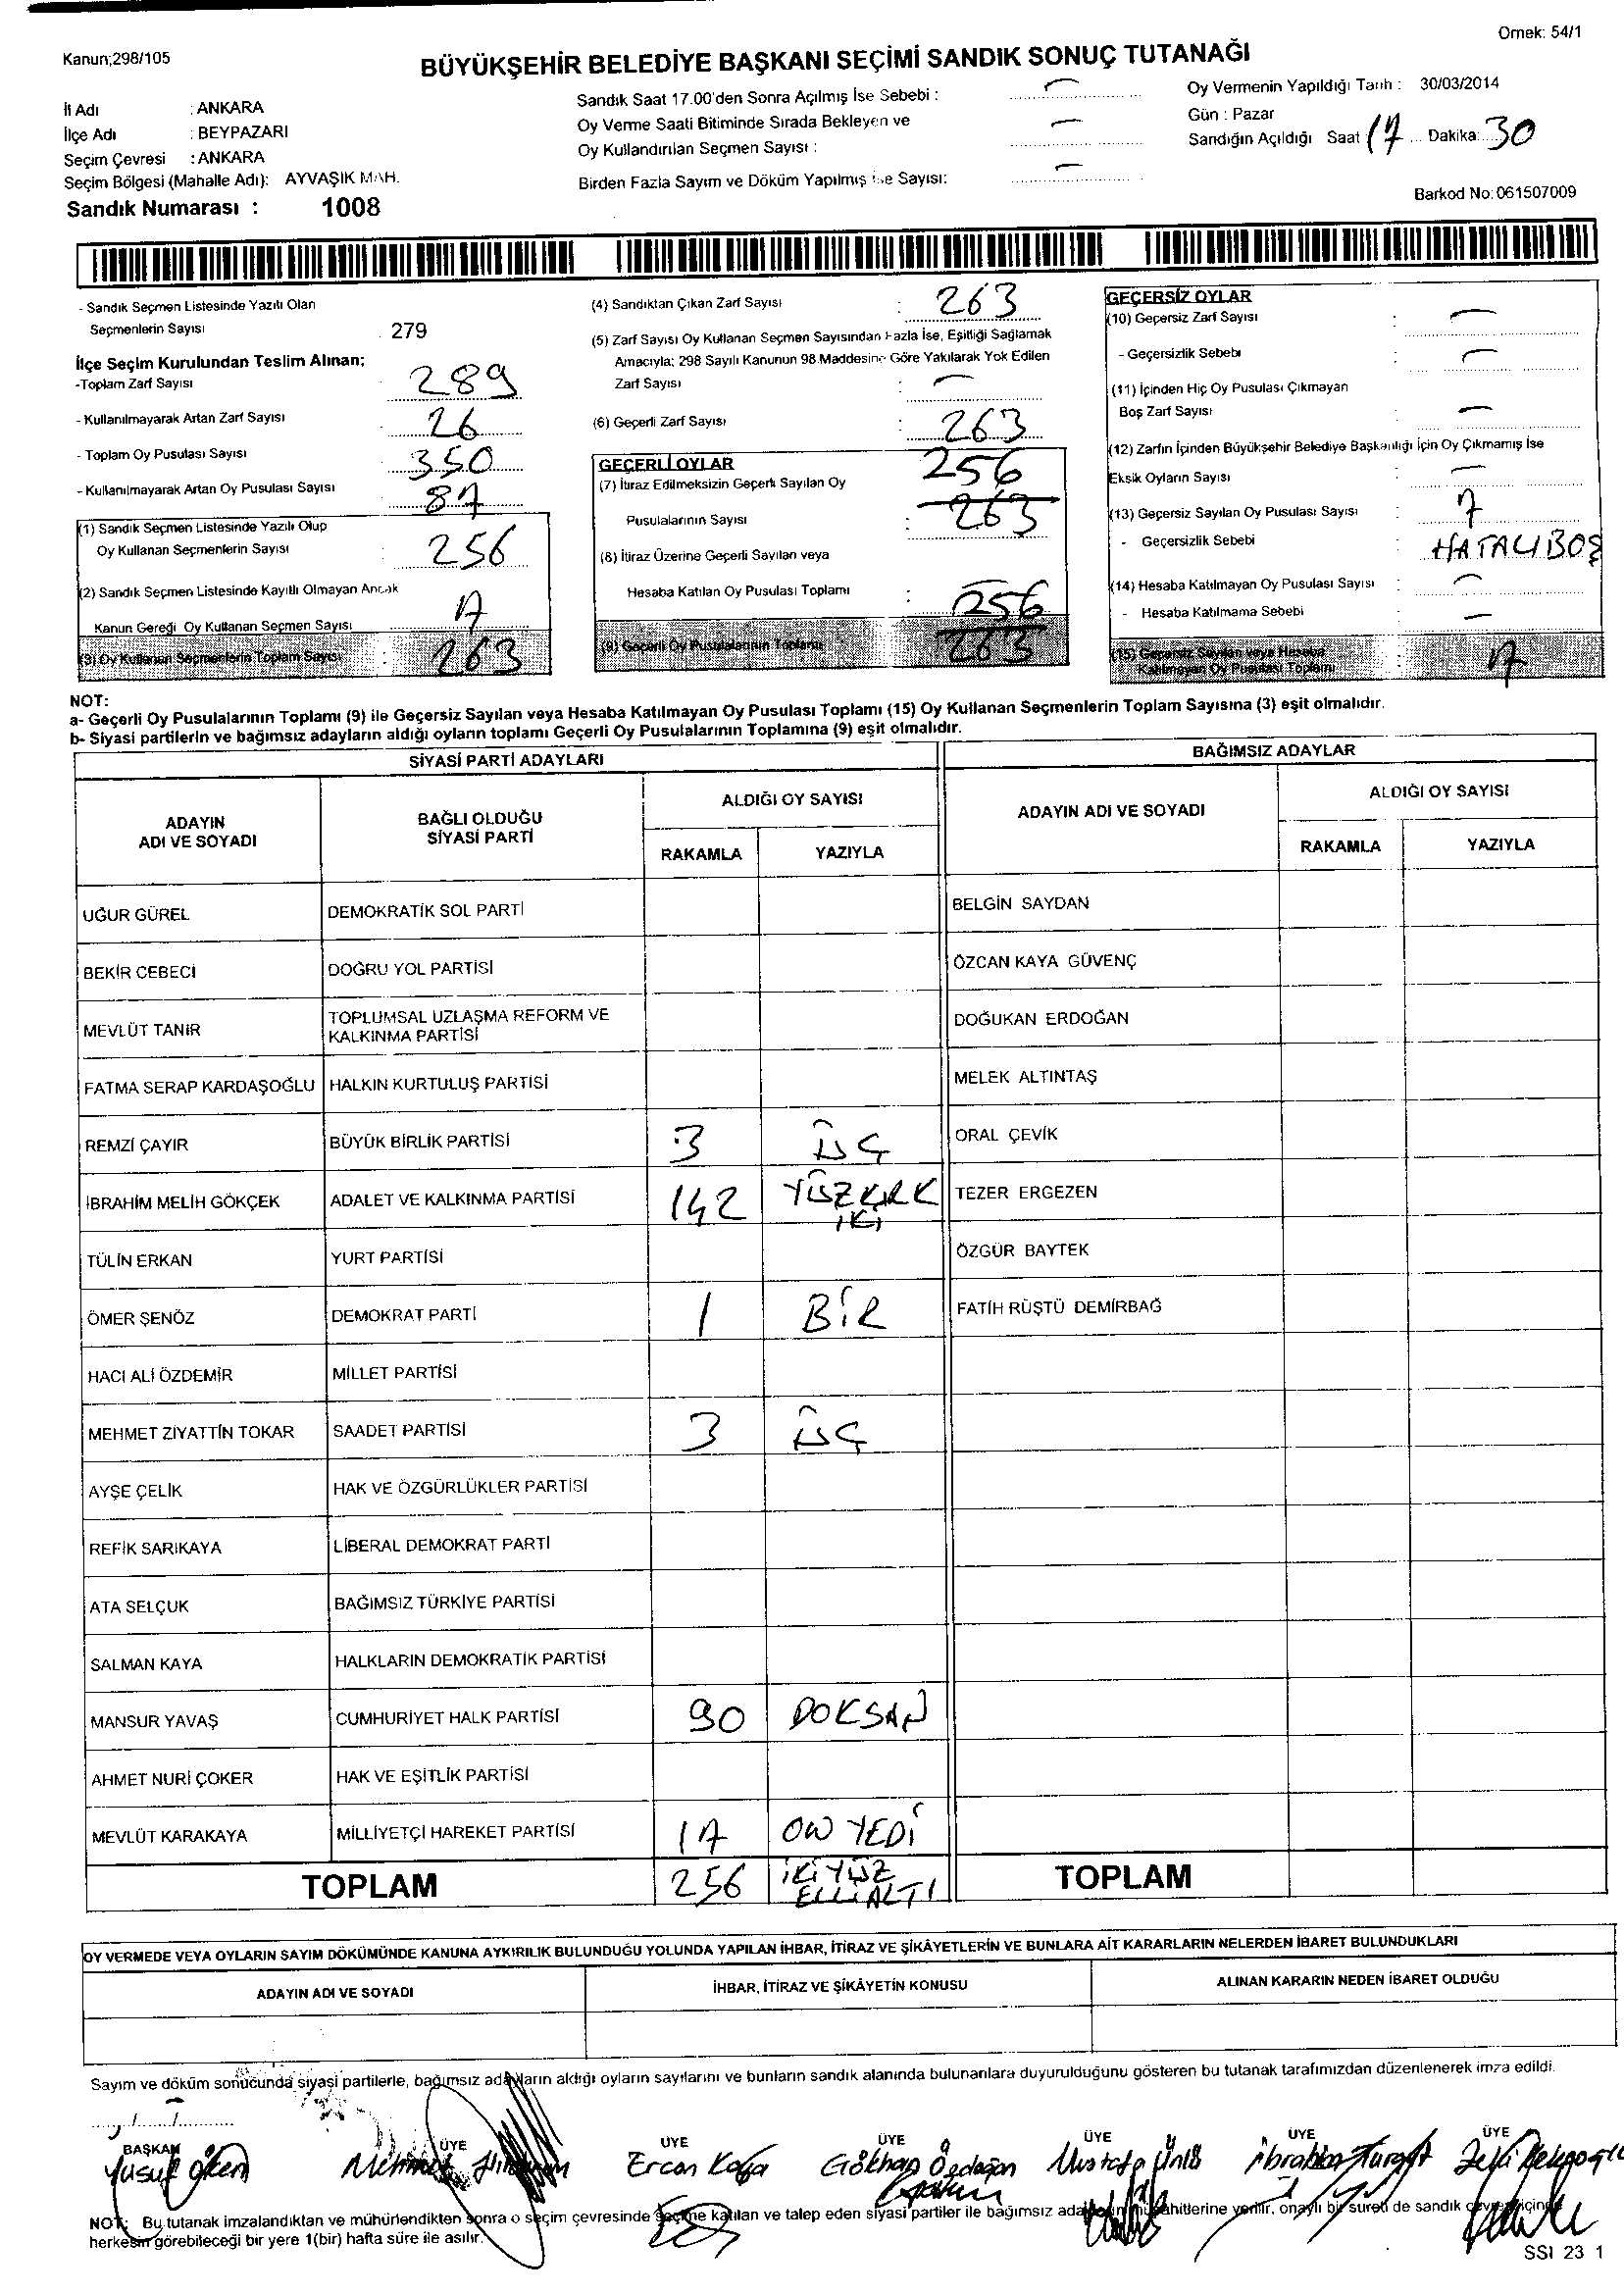 Örnek: 54/1
Kanun;298/105
BÜYÜKŞEHİR BELEDİYE BAŞKANI SEÇİMİ SANDIK SONUÇ TUTANAĞI
İl Adı : ANKARA
İlçe Adı : BEYPAZARI
Seçim Çevresi : ANKARA
Seçim Bölgesi (Mahalle Adı): AYVAŞIK MAH.
Sandık Numarası : 1008
Sandık Saat 17.00'den Sonra Açılmış İse Sebebi : –
Oy Verme Saati Bitiminde Sırada Bekleyen ve
Oy Kullandırılan Seçmen Sayısı : –
Birden Fazla Sayım ve Döküm Yapılmış İse Sayısı: –
Oy Vermenin Yapıldığı Tarih : 30/03/2014
Gün : Pazar
Sandığın Açıldığı Saat 17 Dakika: 30
Barkod No:061507009
- Sandık Seçmen Listesinde Yazılı Olan
Seçmenlerin Sayısı 279
İlçe Seçim Kurulundan Teslim Alınan;
-Toplam Zarf Sayısı 289
- Kullanılmayarak Artan Zarf Sayısı 26
- Toplam Oy Pusulası Sayısı 350
- Kullanılmayarak Artan Oy Pusulası Sayısı 87
(1) Sandık Seçmen Listesinde Yazılı Olup
Oy Kullanan Seçmenlerin Sayısı : 256
(2) Sandık Seçmen Listesinde Kayıtlı Olmayan Ancak
Kanun Gereği Oy Kullanan Seçmen Sayısı 7
(3) Oy Kullanan Seçmenlerin Toplam Sayısı : 263
(4) Sandıktan Çıkan Zarf Sayısı : 263
(5) Zarf Sayısı Oy Kullanan Seçmen Sayısından Fazla İse, Eşitliği Sağlamak
Amacıyla; 298 Sayılı Kanunun 98.Maddesine Göre Yakılarak Yok Edilen
Zarf Sayısı : –
(6) Geçerli Zarf Sayısı : 263
GEÇERLİ OYLAR
256
(7) İtiraz Edilmeksizin Geçerli Sayılan Oy
Pusulalarının Sayısı : 263
(8) İtiraz Üzerine Geçerli Sayılan veya
Hesaba Katılan Oy Pusulası Toplamı : –
256
(9) Geçerli Oy Pusulalarının Toplamı 263
GEÇERSİZ OYLAR
(10) Geçersiz Zarf Sayısı : –
- Geçersizlik Sebebi : –
(11) İçinden Hiç Oy Pusulası Çıkmayan
Boş Zarf Sayısı : –
(12) Zarfın İçinden Büyükşehir Belediye Başkanlığı İçin Oy Çıkmamış İse
Eksik Oyların Sayısı : –
(13) Geçersiz Sayılan Oy Pusulası Sayısı : 7
- Geçersizlik Sebebi : HATALI BOŞ
(14) Hesaba Katılmayan Oy Pusulası Sayısı : –
- Hesaba Katılmama Sebebi : –
(15) Geçersiz Sayılan veya Hesaba
Katılmayan Oy Pusulası Toplamı : 7
NOT:
a- Geçerli Oy Pusulalarının Toplamı (9) ile Geçersiz Sayılan veya Hesaba Katılmayan Oy Pusulası Toplamı (15) Oy Kullanan Seçmenlerin Toplam Sayısına (3) eşit olmalıdır.
b- Siyasi partilerin ve bağımsız adayların aldığı oyların toplamı Geçerli Oy Pusulalarının Toplamına (9) eşit olmalıdır.
SİYASİ PARTİ ADAYLARI
ADAYIN
ADI VE SOYADI
BAĞLI OLDUĞU
SİYASİ PARTİ
ALDIĞI OY SAYISI
RAKAMLA YAZIYLA
UĞUR GÜREL DEMOKRATİK SOL PARTİ
BEKİR CEBECİ DOĞRU YOL PARTİSİ
MEVLÜT TANIR TOPLUMSAL UZLAŞMA REFORM VE
KALKINMA PARTİSİ
FATMA SERAP KARDAŞOĞLU HALKIN KURTULUŞ PARTİSİ
REMZİ ÇAYIR BÜYÜK BİRLİK PARTİSİ 3 ÜÇ
İBRAHİM MELİH GÖKÇEK ADALET VE KALKINMA PARTİSİ 142 YÜZKIRK
İKİ
TÜLİN ERKAN YURT PARTİSİ
ÖMER ŞENÖZ DEMOKRAT PARTİ 1 BİR
HACI ALİ ÖZDEMİR MİLLET PARTİSİ
MEHMET ZİYATTİN TOKAR SAADET PARTİSİ 3 ÜÇ
AYŞE ÇELİK HAK VE ÖZGÜRLÜKLER PARTİSİ
REFİK SARIKAYA LİBERAL DEMOKRAT PARTİ
ATA SELÇUK BAĞIMSIZ TÜRKİYE PARTİSİ
SALMAN KAYA HALKLARIN DEMOKRATİK PARTİSİ
MANSUR YAVAŞ CUMHURİYET HALK PARTİSİ 90 DOKSAN
AHMET NURİ ÇOKER HAK VE EŞİTLİK PARTİSİ
MEVLÜT KARAKAYA MİLLİYETÇİ HAREKET PARTİSİ 17 ON YEDİ
TOPLAM 256 İKİYÜZ
ELLİALTI
BAĞIMSIZ ADAYLAR
ADAYIN ADI VE SOYADI
ALDIĞI OY SAYISI
RAKAMLA YAZIYLA
BELGİN SAYDAN
ÖZCAN KAYA GÜVENÇ
DOĞUKAN ERDOĞAN
MELEK ALTINTAŞ
ORAL ÇEVİK
TEZER ERGEZEN
ÖZGÜR BAYTEK
FATİH RÜŞTÜ DEMİRBAĞ
TOPLAM
OY VERMEDE VEYA OYLARIN SAYIM DÖKÜMÜNDE KANUNA AYKIRILIK BULUNDUĞU YOLUNDA YAPILAN İHBAR, İTİRAZ VE ŞİKÂYETLERİN VE BUNLARA AİT KARARLARIN NELERDEN İBARET BULUNDUKLARI
ADAYIN ADI VE SOYADI İHBAR, İTİRAZ VE ŞİKÂYETİN KONUSU ALINAN KARARIN NEDEN İBARET OLDUĞU
Sayım ve döküm sonucunda siyasi partilerle, bağımsız adayların aldığı oyların sayılarını ve bunların sandık alanında bulunanlara duyurulduğunu gösteren bu tutanak tarafımızdan düzenlenerek imza edildi.
BAŞKAN ÜYE ÜYE ÜYE ÜYE ÜYE ÜYE
Yusuf Mehmet Ercan Kaya Gökhan Özdoğan Mustafa Ünlü İbrahim Turgut Zeki
NOT: Bu tutanak imzalandıktan ve mühürlendikten sonra o seçim çevresinde seçime katılan ve talep eden siyasi partiler ile bağımsız adayların müşahitlerine verilir, onaylı bir sureti de sandık çevresi içinde
herkesin görebileceği bir yere 1(bir) hafta süre ile asılır.
SSI 23 1